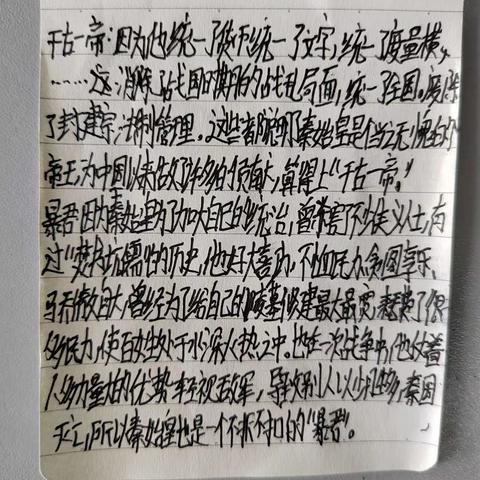 千古一帝:因为他统一了货币统一了文字,统一了度量横,
……这消除了战国时期的战乱局面,统一全国,废除
了封建宗法制管理。这些都说明了秦始皇是个当之无愧的
帝王,为中国以来做了许多的贡献,算得上“千古一帝。”
暴君:因为秦始皇为了加大自己的统治,曾杀害不少仁义人士,有
过“焚书坑儒”的历史,他好大喜功,不恤民力,贪图享乐、
骄傲自大,曾经为了给自己的陵墓修建最大最宽,耗费了很
多民力,使百姓处于水深火热之中。也在一次战争中,他仗着
人多力量大的优势轻视敌军,导致别人以少胜多,秦国
灭亡,所以秦始皇也是一个不折不扣的“暴君”。